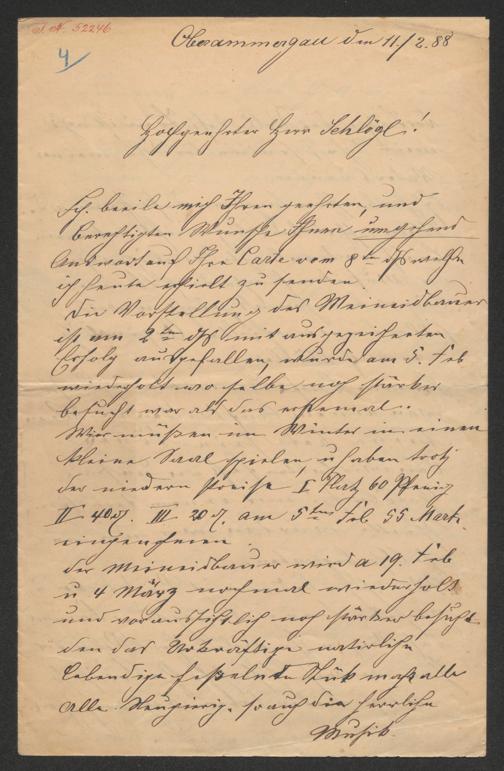 I. N. 52246
4
Oberammergau den 11./2. 88
Hochgeehrter Herr Schlögl!
Ich beeile mich Ihren geehrten, und
berechtigten Wunsche Ihnen umgehend
Antwort auf Ihre Carte vom 8ten dß welche
ich heute erhielt zu senden
Die Vorstellung des Meineidbauer
ist am 2ten dß mit ausgezeichneten
Erfolg ausgefallen, wurde am 5. Feb
wiederholt wo selbe noch stärker
besucht war als das erstemal.
Wir müßen im Winter in einen
kleine Saal spielen, u haben trotz
der niedern Preise I Platz 60 Pfenig
II 40 ₰. III 20 ₰. am 5ten Feb. 55 Mark
eingenohmen.
Der Meineidbauer wird a 19. Feb
u 4 März nochmal wiederholt
und voraussichtlich noch stärker besucht
den das Urkräftige natürliche
lebendige feßelnde Stük macht alle
alle Neugierig, so auch die herrliche
Musik.